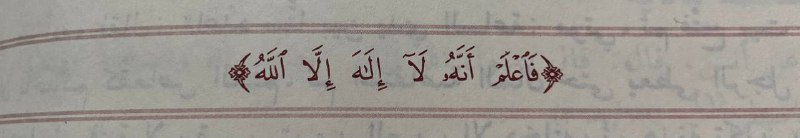 ﴿فَٱعۡلَمۡ أَنَّهُۥ لَآ إِلَٰهَ إِلَّا ٱللَّهُ﴾